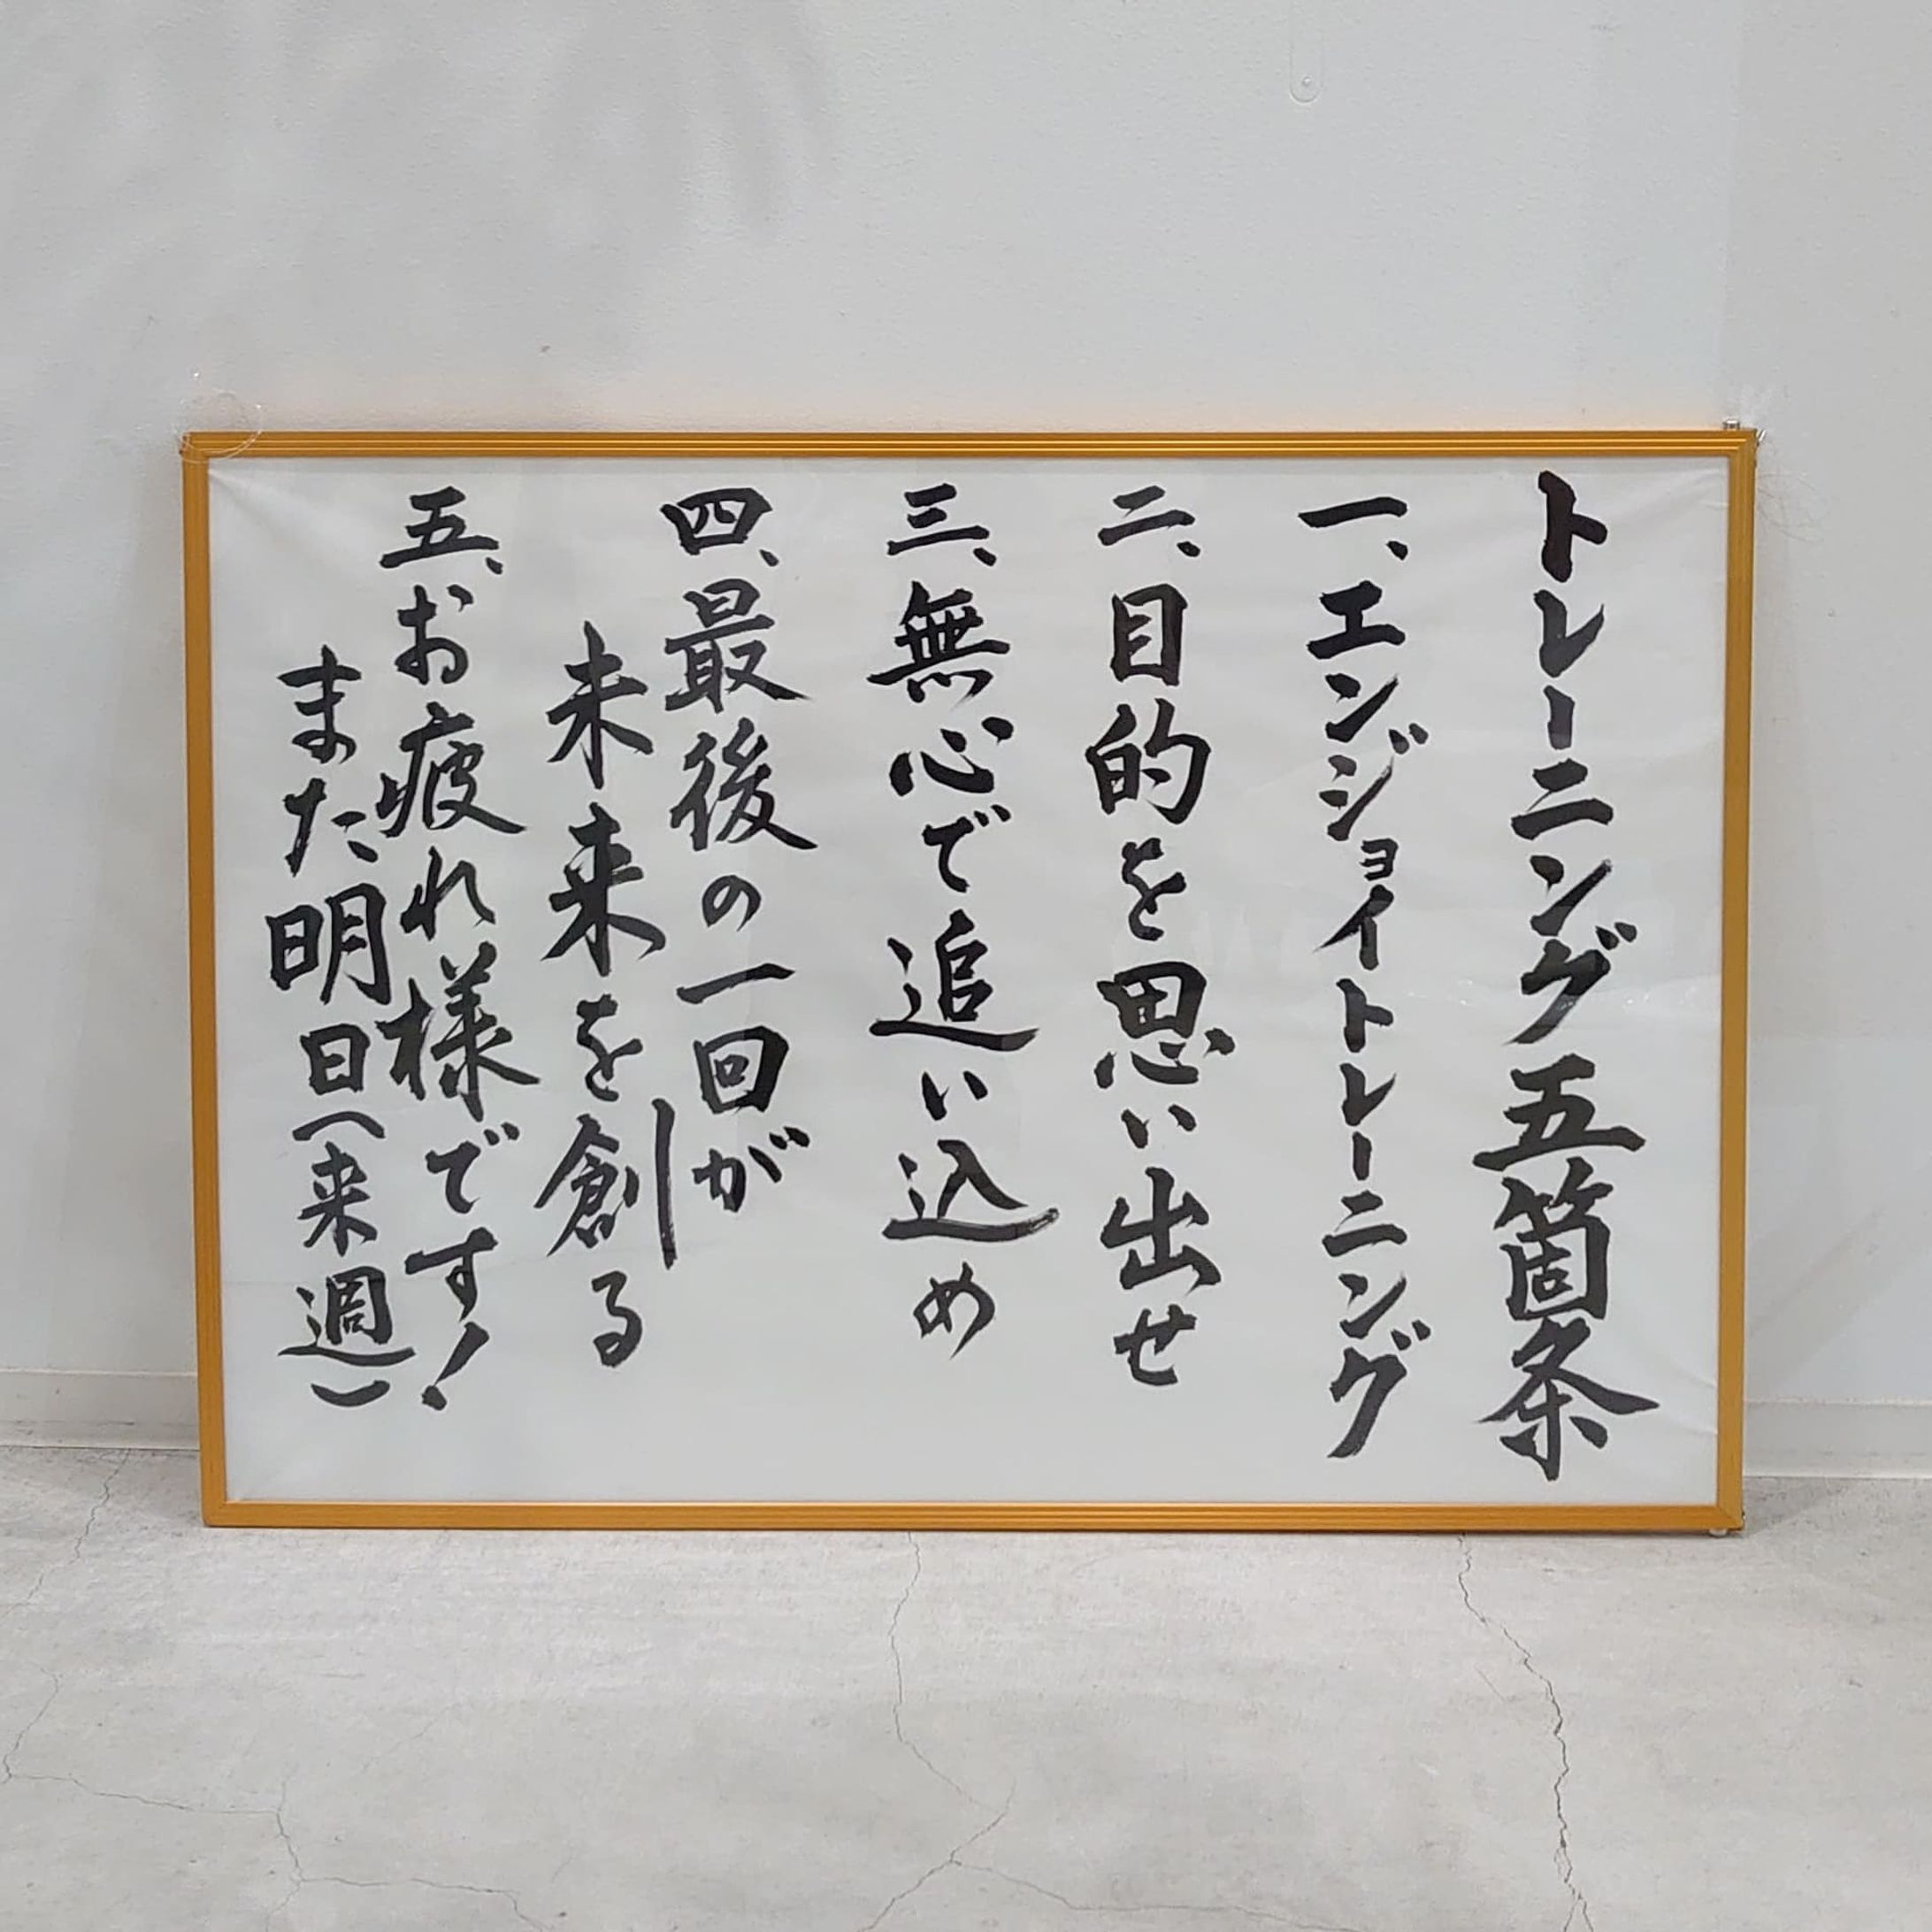 トレーニング五箇条
一、エンジョイトレーニング
二、目的を思い出せ
三、無心で追い込め
四、最後の一回が
未来を創る
五、お疲れ様です!
また明日(来週)